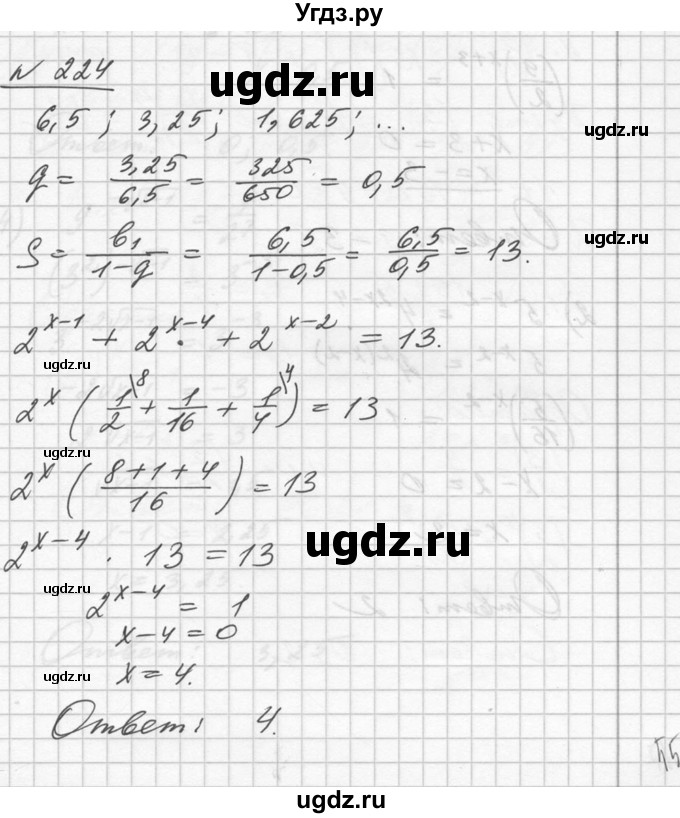 Угдз.ру
№ 224
ugdz.ru
6,5 ; 3,25 ; 1,625 ; ...
ugdz.ru
q = 3,25/6,5 = 325/650 = 0,5
S = b₁/(1-q) = 6,5/(1-0,5) = 6,5/0,5 = 13.
ugdz.ru
2^(x-1) + 2^(x-4) + 2^(x-2) = 13.
ugdz.ru
2^x (1/2\8 + 1/16 + 1/4\4) = 13
ugdz.ru
2^x ((8+1+4)/16) = 13
ugdz.ru
2^(x-4) · 13 = 13
ugdz.ru
2^(x-4) = 1
x-4 = 0
ugdz.ru
x = 4.
ugdz.ru
Ответ: 4.
ugdz.ru